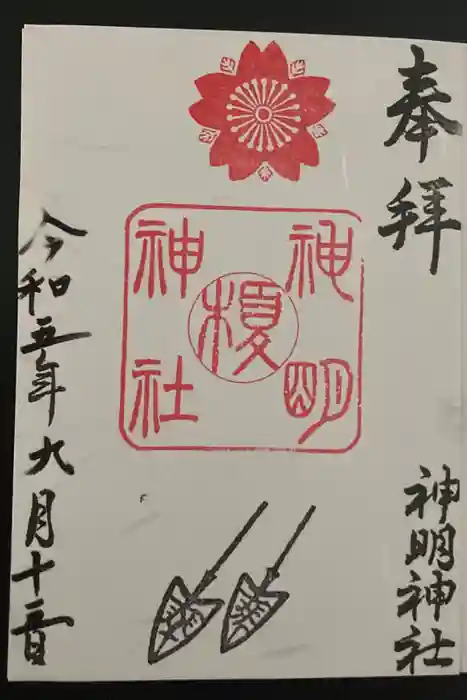 奉拝
神明神社
神明
榎
神社
令和五年六月十日